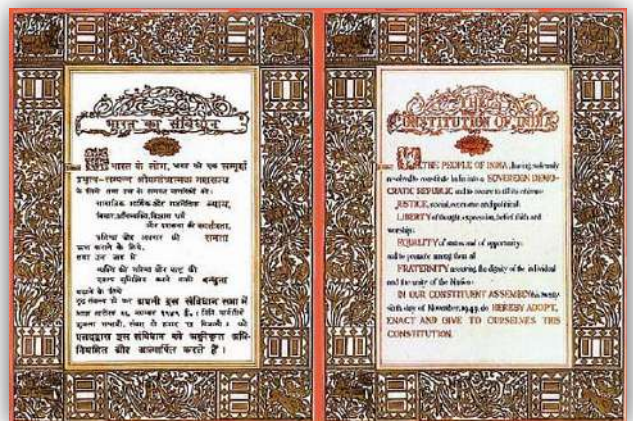 भारत का संविधान
हम, भारत के लोग, भारत को एक सम्पूर्ण
प्रभुत्व-सम्पन्न लोकतंत्रात्मक गणराज्य
के लिये, तथा उस के समस्त नागरिकों को:
सामाजिक, आर्थिक और राजनैतिक न्याय,
विचार, अभिव्यक्ति, विश्वास, धर्म
और उपासना की स्वतंत्रता,
प्रतिष्ठा और अवसर की समता
प्राप्त कराने के लिये,
तथा उन सब में
व्यक्ति की गरिमा और राष्ट्र की
एकता सुनिश्चित करने वाली बन्धुता
बढ़ाने के लिये
दृढ़ संकल्प हो कर अपनी इस संविधान सभा में
आज तारीख २६ नवम्बर १९४९ ई. (मिति मार्गशीर्ष
शुक्ला सप्तमी, संवत् दो हजार छः विक्रमी) को
एतद्द्वारा इस संविधान को अंगीकृत, अधि-
नियमित और आत्मार्पित करते हैं।
THE
CONSTITUTION OF INDIA
WE, THE PEOPLE OF INDIA, having solemnly
resolved to constitute India into a SOVEREIGN DEMO-
CRATIC REPUBLIC and to secure to all its citizens:
JUSTICE, social, economic and political;
LIBERTY of thought, expression, belief, faith and
worship;
EQUALITY of status and of opportunity;
and to promote among them all
FRATERNITY assuring the dignity of the individual
and the unity of the Nation;
IN OUR CONSTITUENT ASSEMBLY this twenty-
sixth day of November, 1949, do HEREBY ADOPT,
ENACT AND GIVE TO OURSELVES THIS
CONSTITUTION.